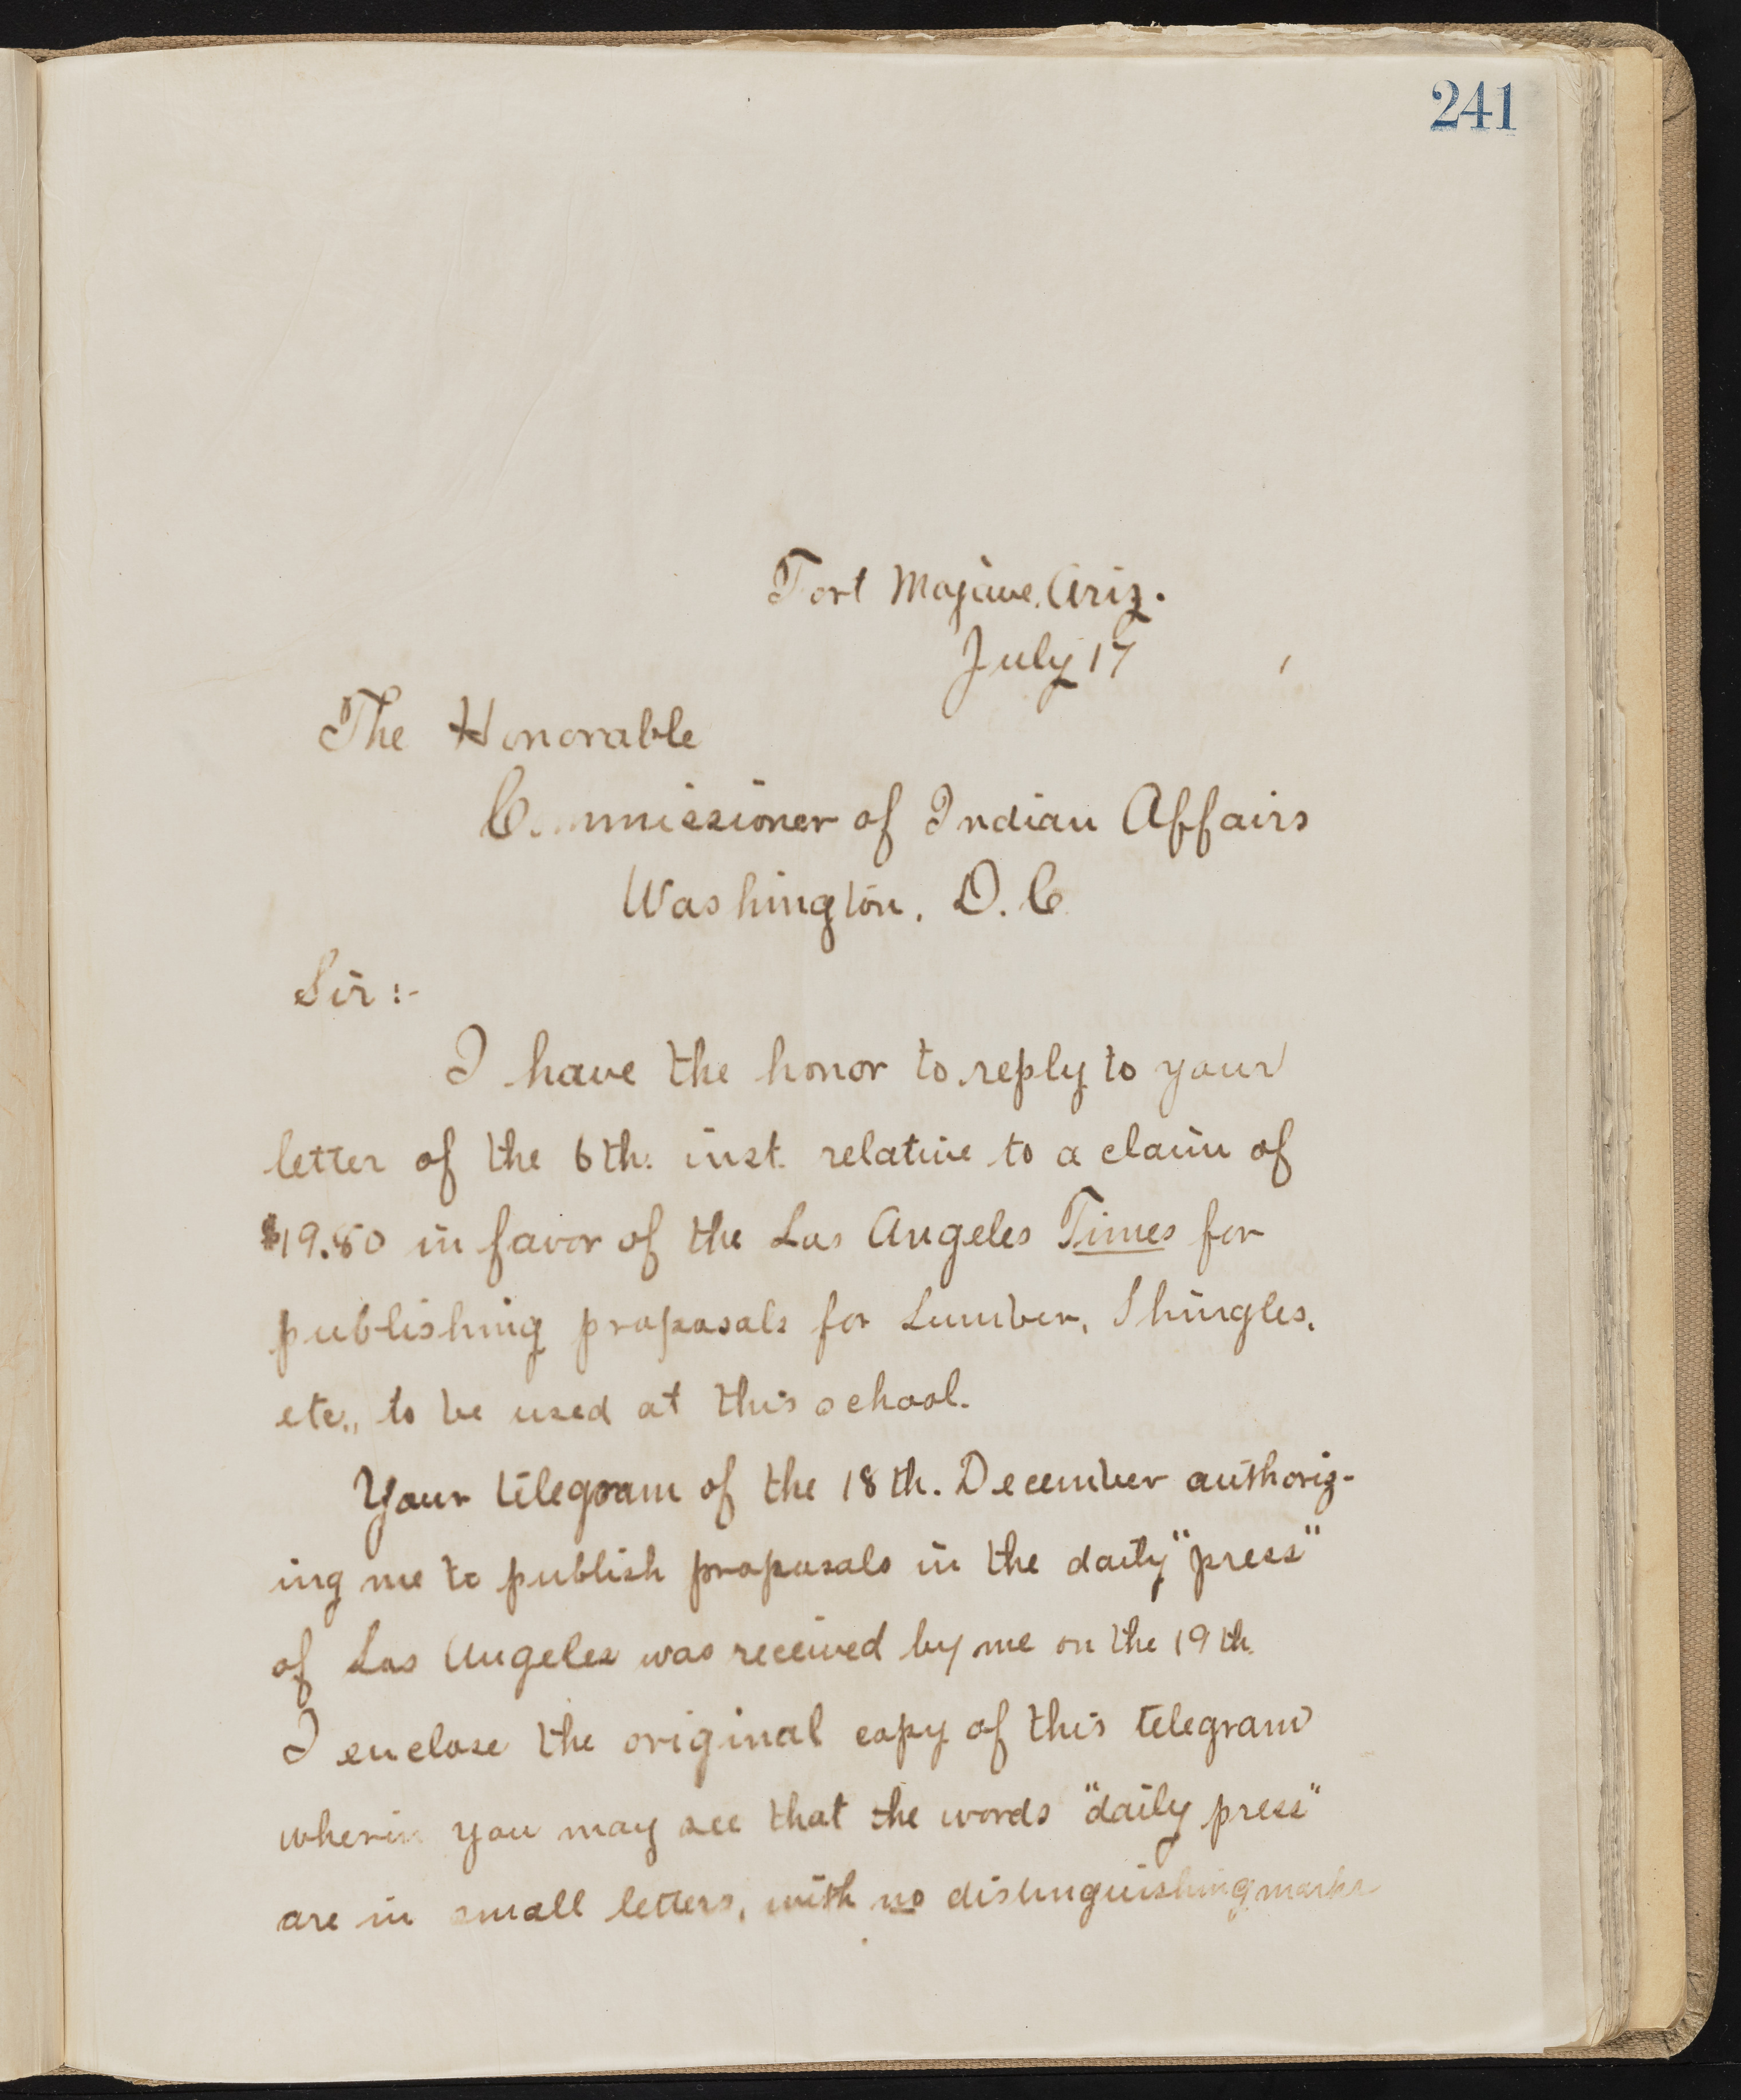 241
Fort Mojave, Ariz.
July 17
The Honorable
Commissioner of Indian Affairs
Washington, D.C
Sir:-
I have the honor to reply to your
letter of the 6th. inst. relative to a claim of
$19.80 in favor of the Los Angeles Times for
publishing proposals for Lumber, Shingles,
etc., to be used at this school.
Your telegram of the 18th. December authoriz-
ing me to publish proposals in the daily "press"
of Los Angeles was received by me on the 19th.
I enclose the original copy of this telegram
wherin you may see that the words "daily press"
are in small letters, with no distinguishing marks